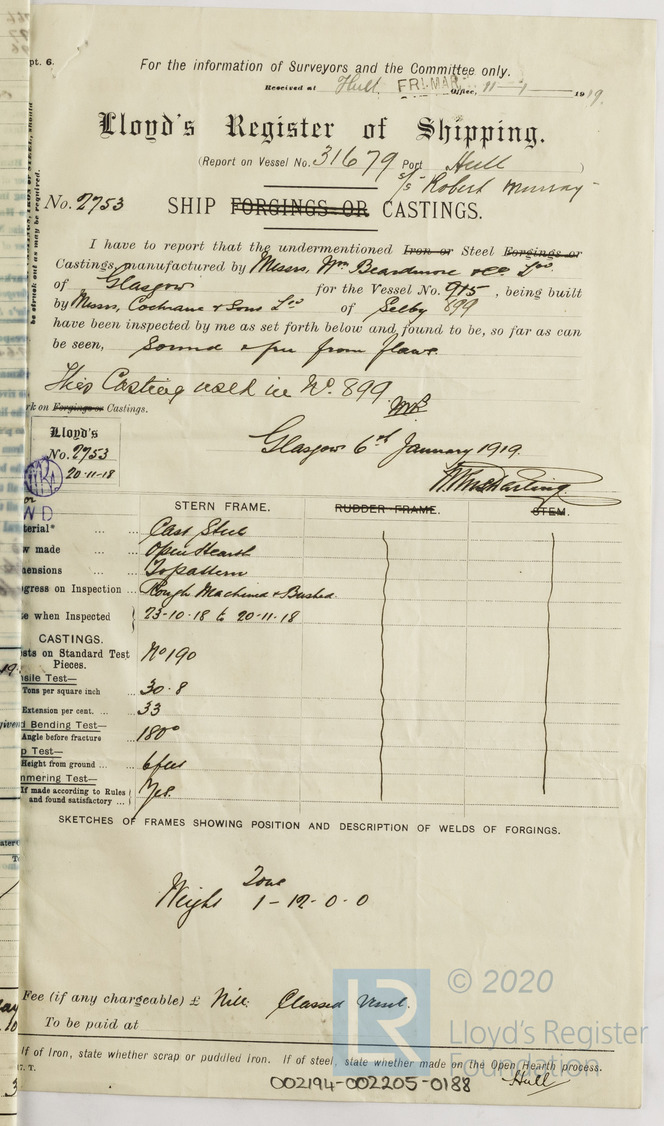 pt. 6.
For the information of Surveyors and the Committee only.
Received at Hull FRI. MAR. Office, 1919.
Lloyd's Register of Shipping.
(Report on Vessel No. 31679 Port Hull )
s/s Robert Murray
No. 2753 SHIP FORGINGS OR CASTINGS.
I have to report that the undermentioned Iron or Steel Forgings or
Castings, manufactured by Messrs, Wm Beardmore & Co Ld
of Glasgow for the Vessel No. 915, being built
by Messrs, Cochrane & Sons Ld of Selby 899
have been inspected by me as set forth below and found to be, so far as can
be seen, Sound & free from flaws.
This Casting used in No. 899
rk on Forgings or Castings.
Lloyd's
No. 2753
20-11-18
Glasgow 6th January 1919.
or
WD
STERN FRAME. RUDDER FRAME. STEM.
terial* ... ... Cast Steel
w made ... ... Open Hearth
mensions ... ... To pattern
gress on Inspection ... Rough Machined & Bushed.
e when Inspected 23-10-18 to 20-11-18
CASTINGS.
sts on Standard Test
Pieces. No 190
sile Test—
Tons per square inch ... 30.8
Extension per cent. ... 33
d Bending Test—
Angle before fracture ... 180°
p Test—
Height from ground ... ... 6 feet
mmering Test—
If made according to Rules
and found satisfactory ... Yes.
SKETCHES OF FRAMES SHOWING POSITION AND DESCRIPTION OF WELDS OF FORGINGS.
Tons
Weight 1-12-0-0
Fee (if any chargeable) £ Nill. Classed Vessel.
To be paid at
If of Iron, state whether scrap or puddled iron. If of steel, state whether made on the Open Hearth process.
T.
002194-002205-0188 Hull
LR
© 2020
Lloyd's Register
Foundation